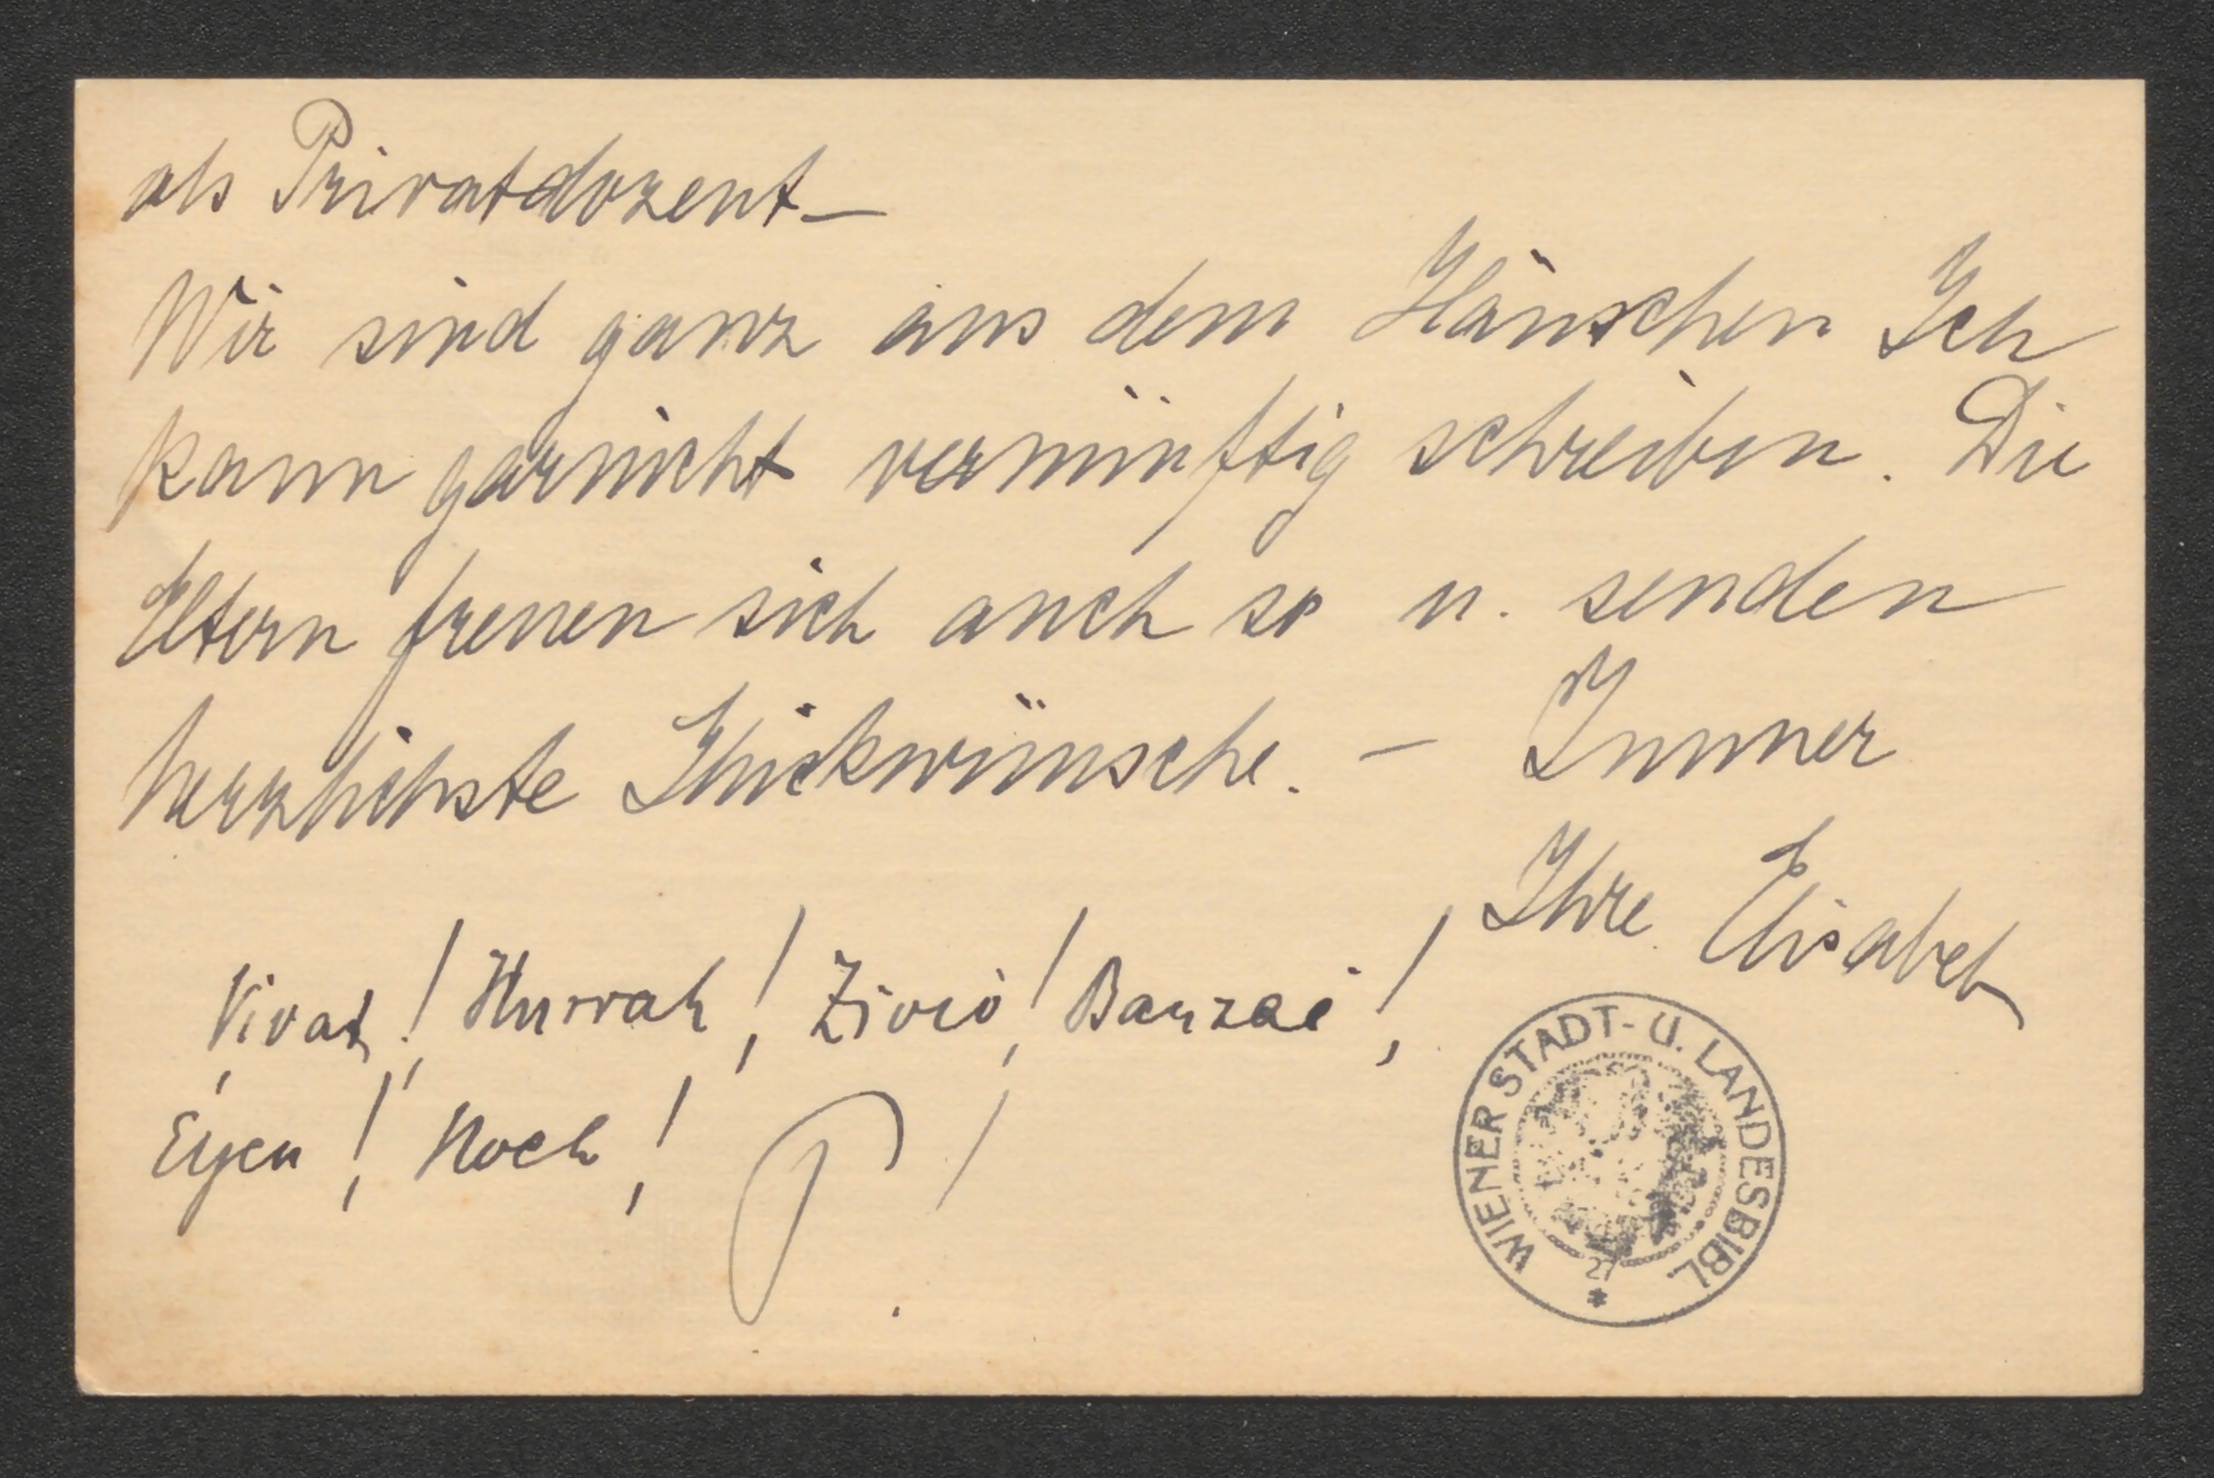 als Privatdozent—
Wir sind ganz aus dem Häuschen Ich
kann garnicht vernünftig schreiben. Die
Eltern freuen sich auch so u. senden
herzlichste Glückwünsche. — Immer
Ihre Elisabeth
Vivat! Hurrah! Živió! Banzai!
Eljen! Hoch! P.!
WIENER STADT- U. LANDESBIBL.
27